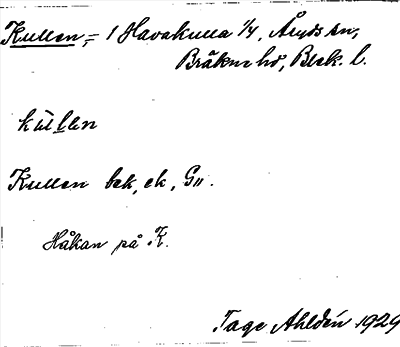 Kullen, = 1 Havakulla 1/4, Åryds sn,
Bräkne hd, Blek. l.
kùllen
Kullen bek, ek, G11.
Håkan på K.
Tage Ahldén 1929